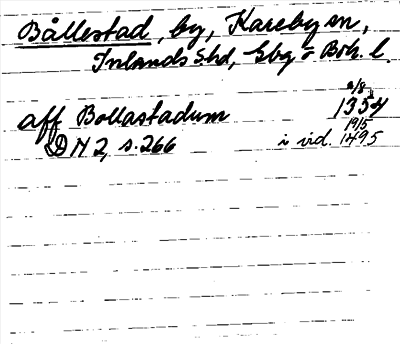 Bållestad, by, Kareby sn,
Inlands S hd, Gbg o Boh. l.
aff Bollastadum 2/8 1354
DN 2, s. 266 i vid. 19/5 1495